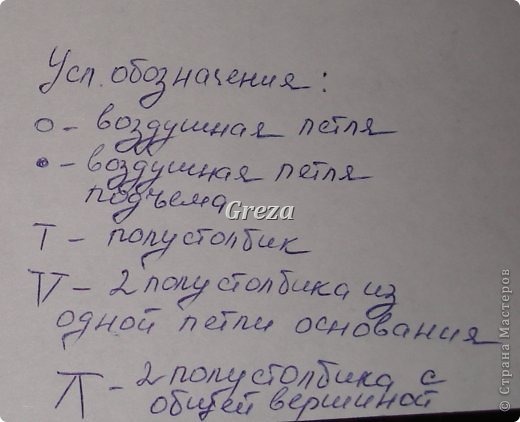 Усл. обозначения:
o – воздушная петля
• – воздушная петля
подъема
Greza
T – полустолбик
– 2 полустолбика из
одной петли основания
– 2 полустолбика с
общей вершиной
© Страна Мастеров